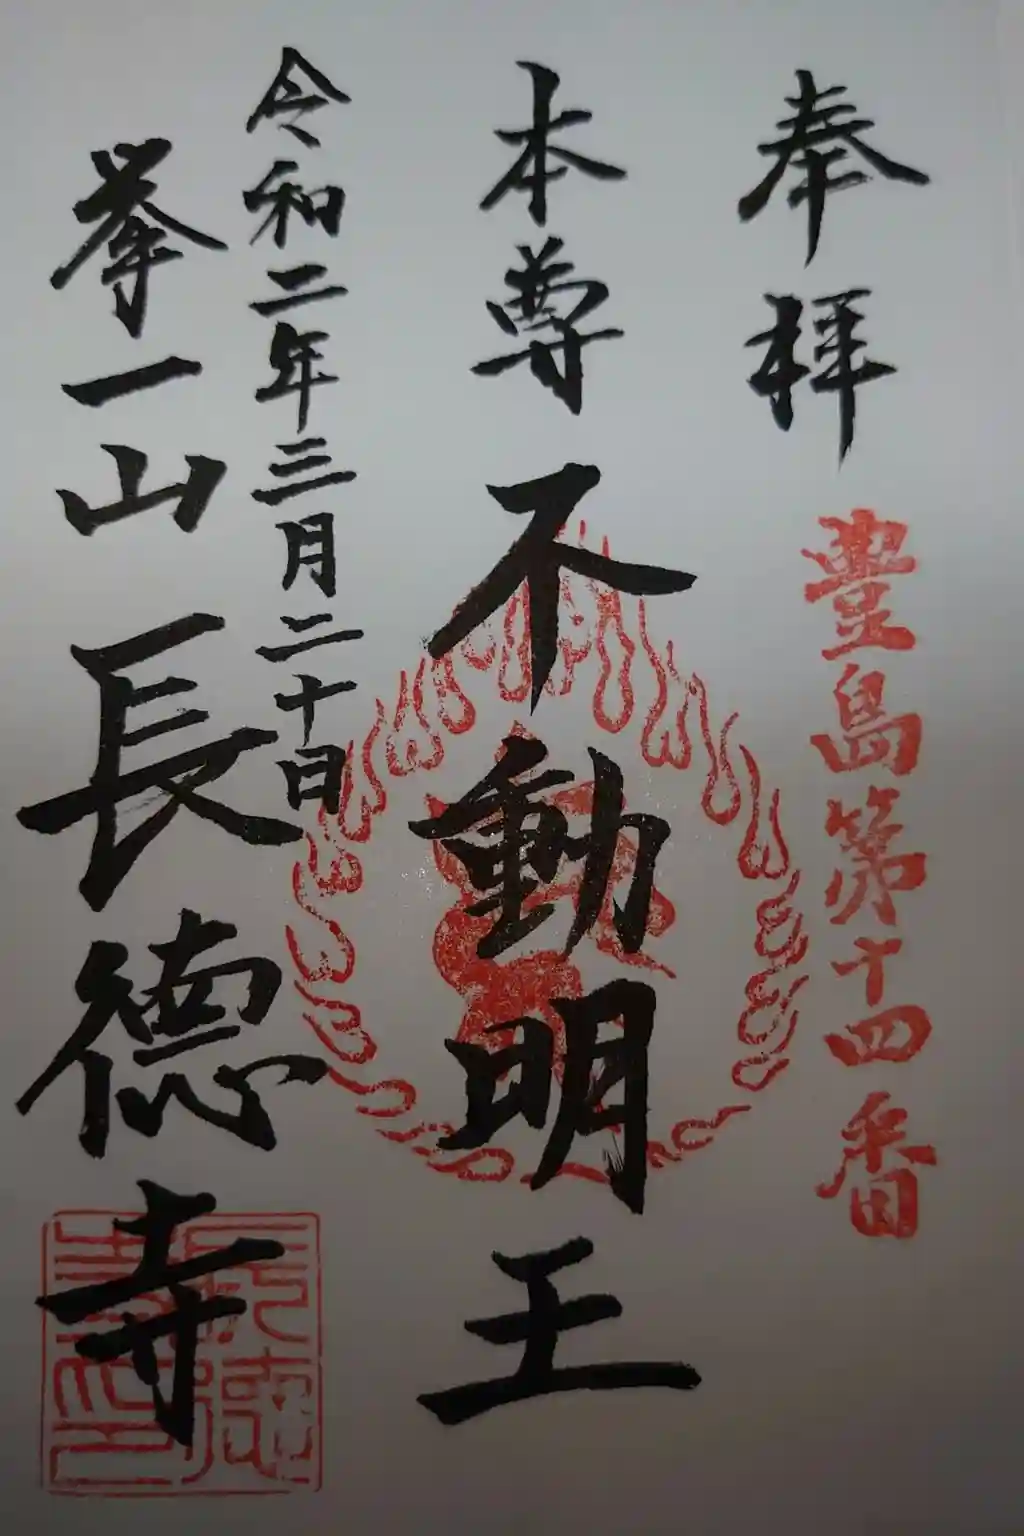 奉拝
豊島第十四番
本尊
不動明王
令和二年三月二十日
拳一山長徳寺